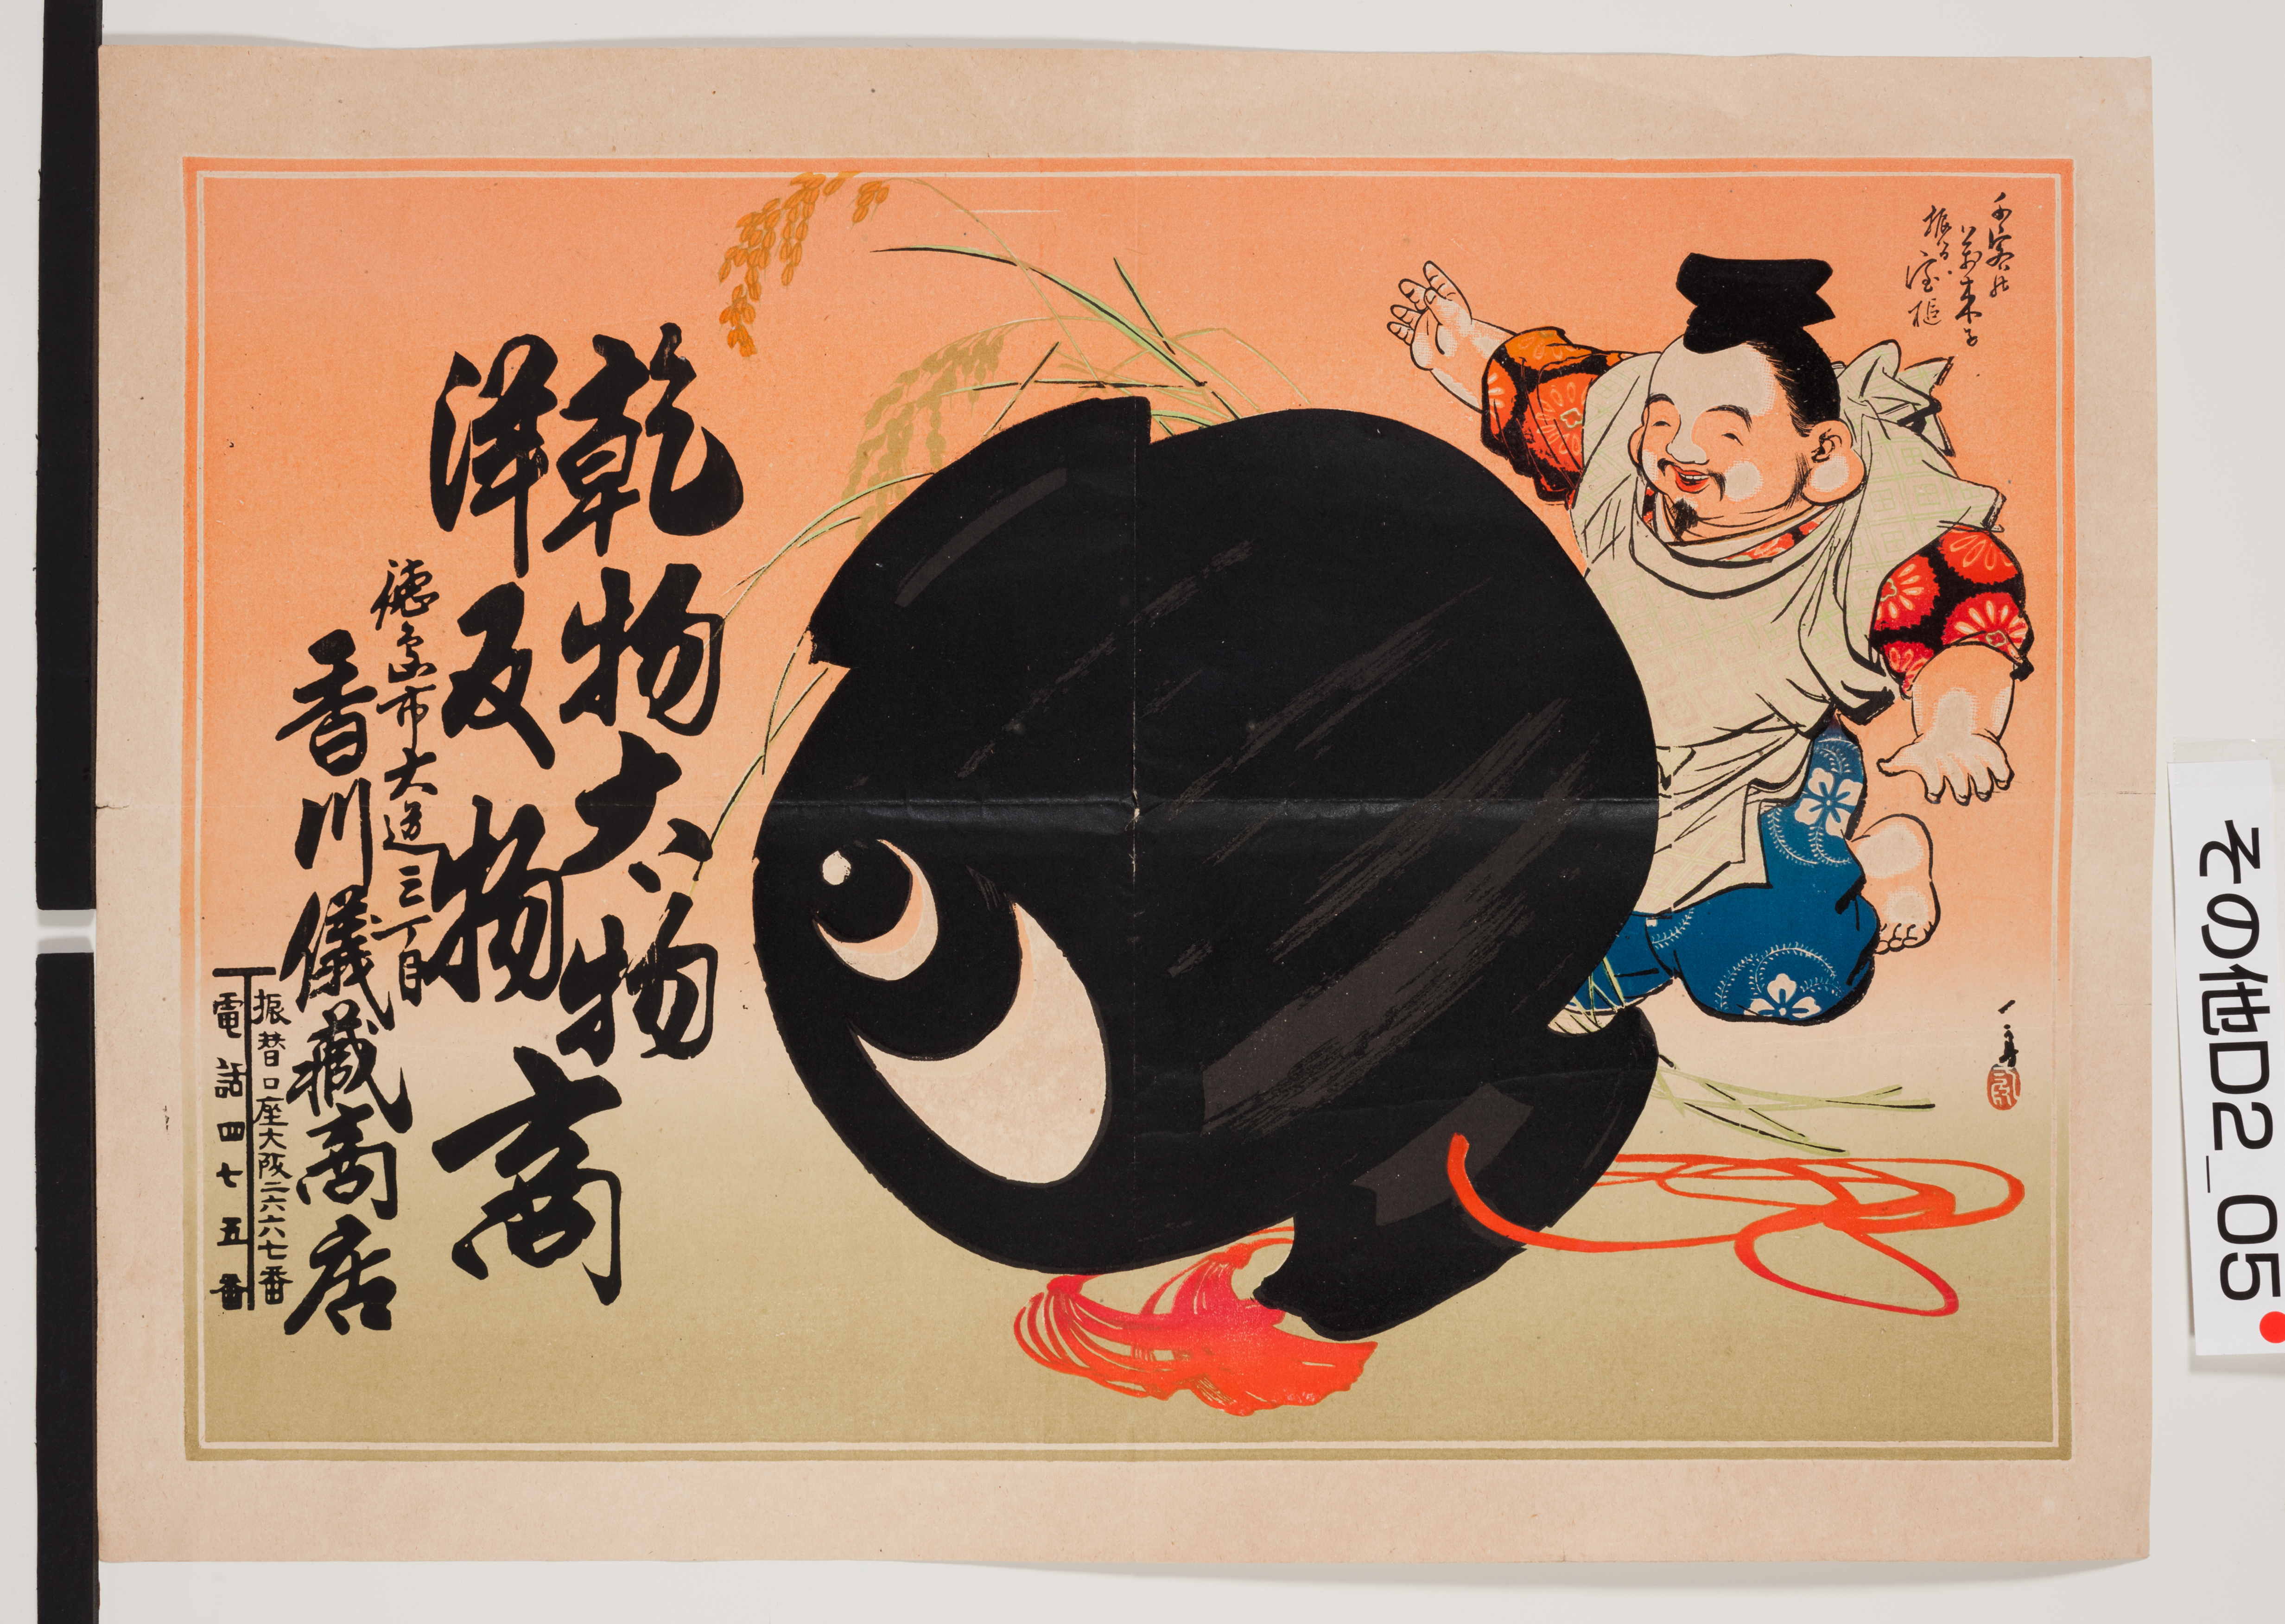 千客の
萬来を
振る宝槌
乾物太物
洋反物
商
徳島市大道三丁目
香川儀藏商店
振替口座大阪二六六七番
電話四七五番
その他D2_05